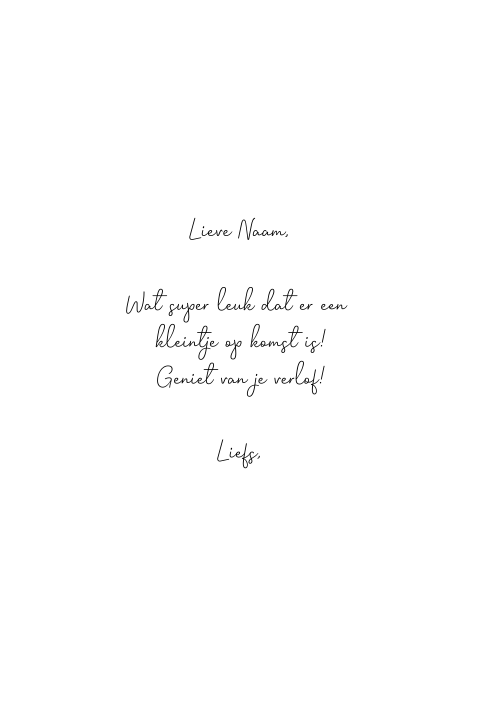 Lieve Naam,
Wat super leuk dat er een
kleintje op komst is!
Geniet van je verlof!
Liefs,